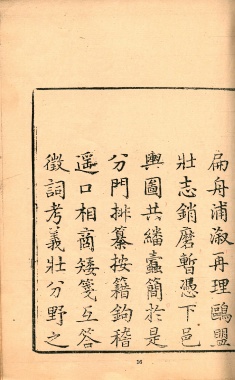 扁舟浦溆再理鷗盟
壯志銷磨暫憑下邑
輿圖共繙蠹簡於是
分門排纂按籍鉤稽
遥口相商矮箋互答
徵詞考義壯分野之
16